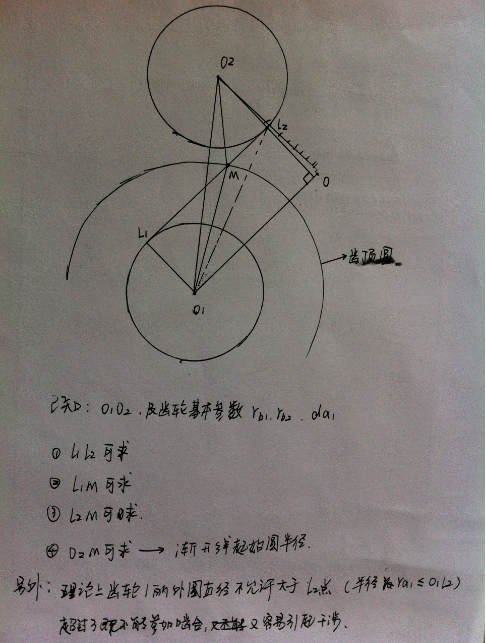 O2
L2
M
O
L1
齿顶圆
O1
已知: O1O2, 及齿轮基本参数 rb1. rb2. da1
① L1L2 可求
② L1M 可求
③ L2M 可求.
④ O2M 可求 → 渐开线起始圆半径.
另外: 理论上齿轮1的外圆直径不允许大于 L2点 (半径为 ra1 ≤ O1L2)
超过了既不能参加啮合, 又容易引起干涉.